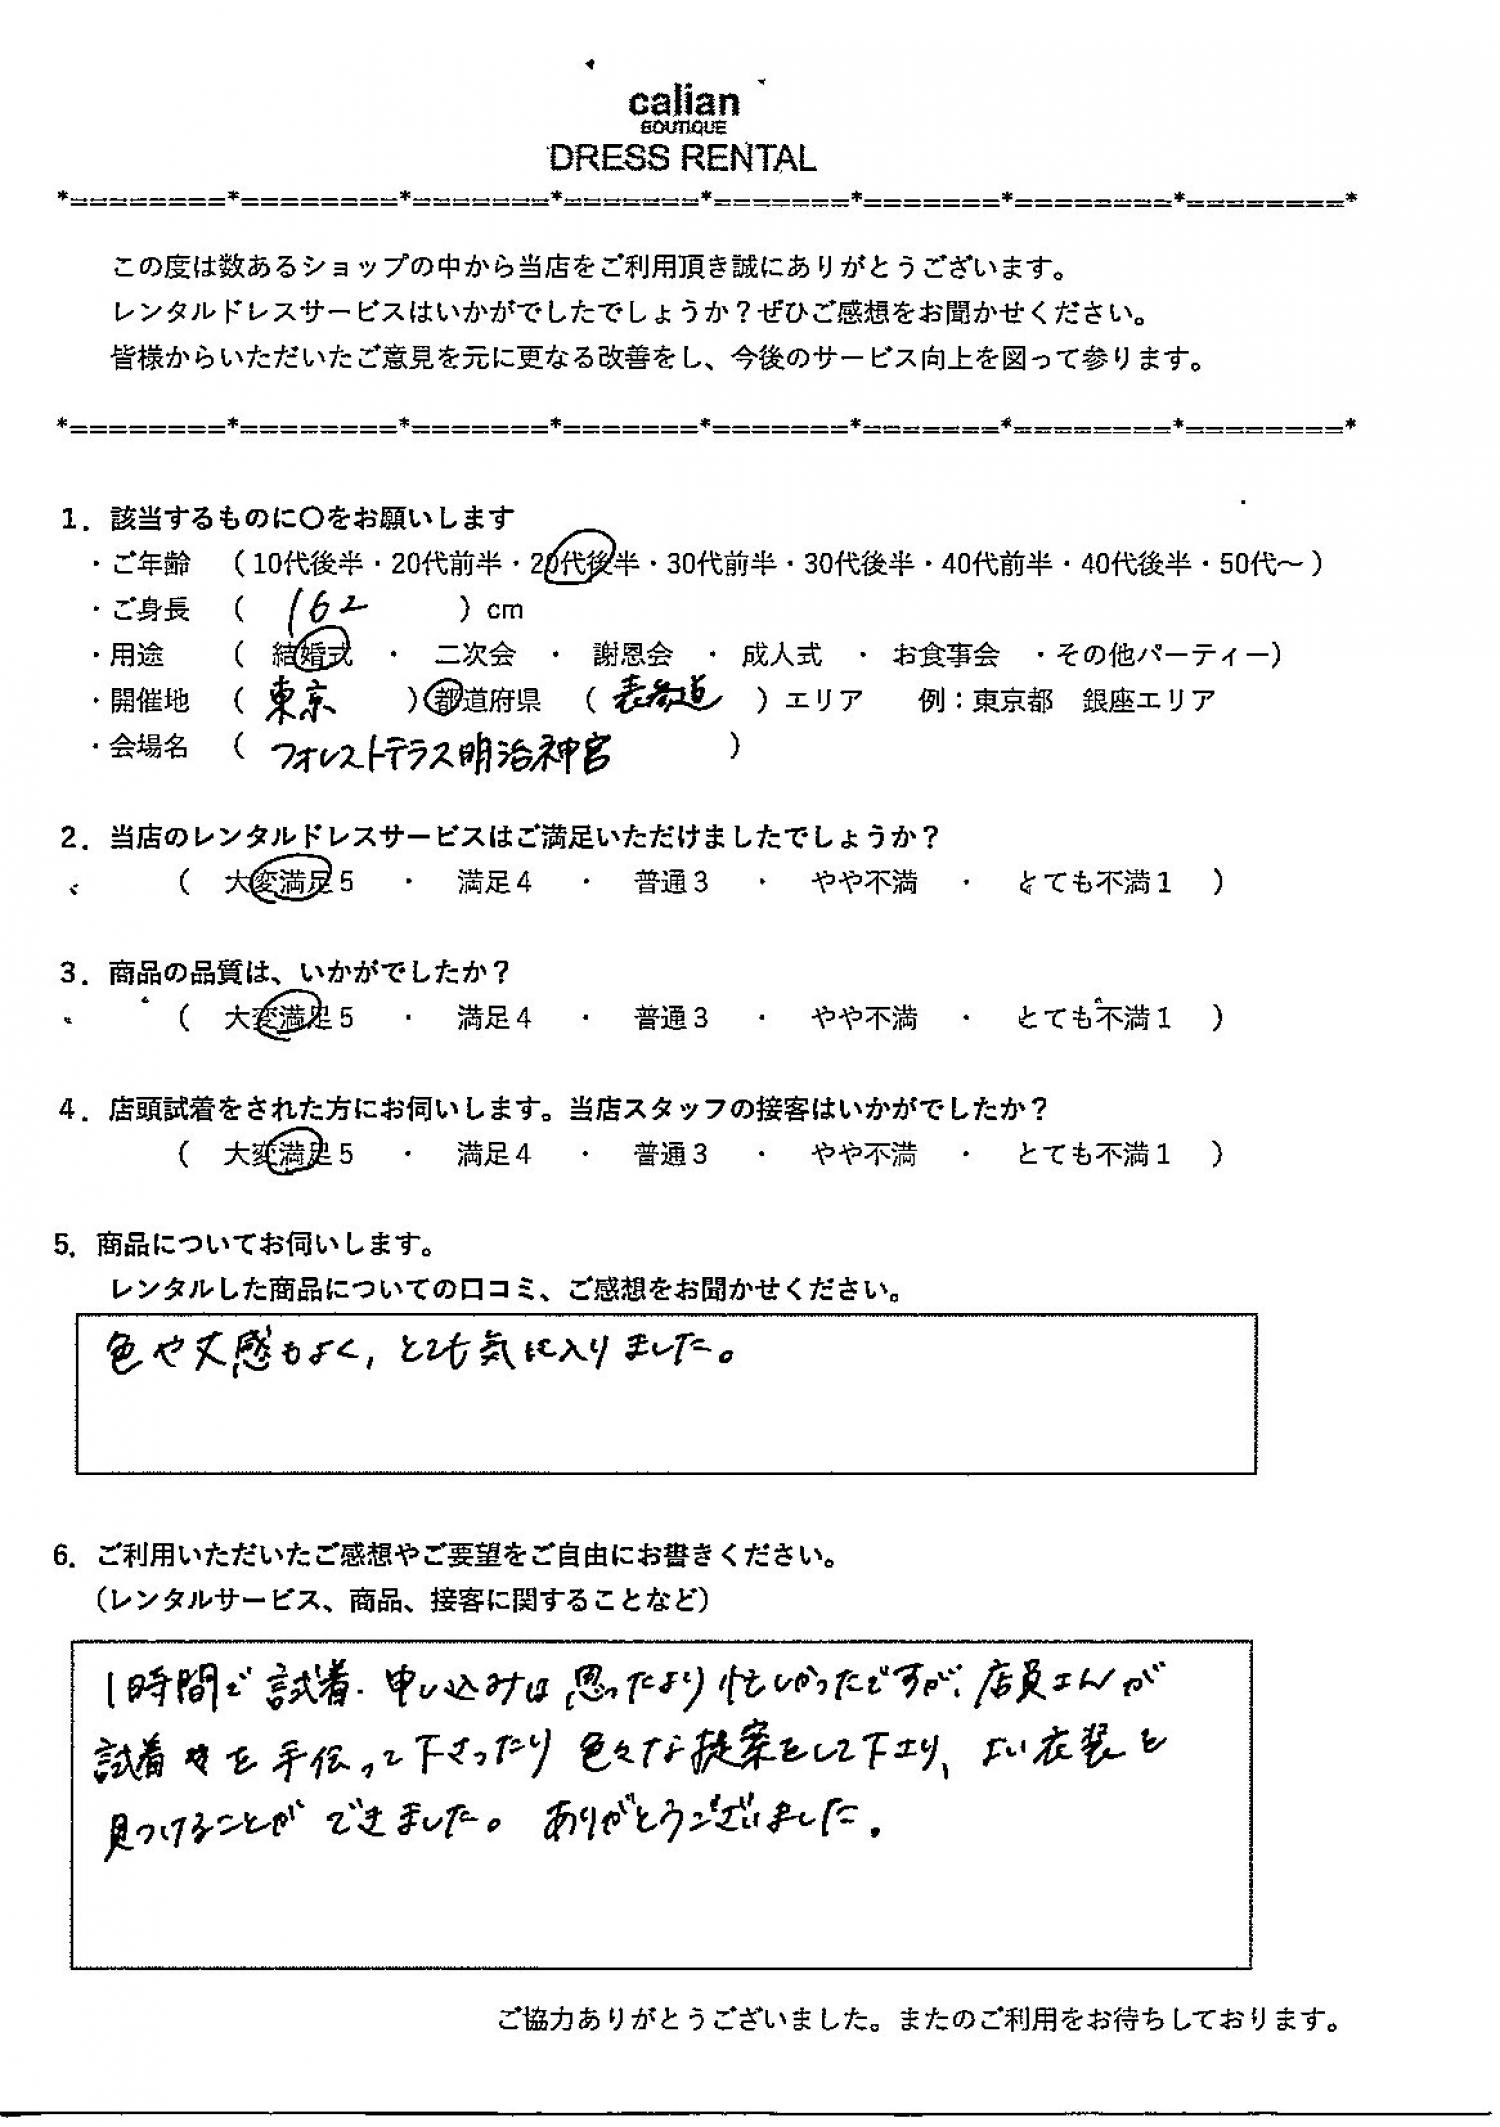 calian
BOUTIQUE
DRESS RENTAL
*========*========*=======*=======*=======*=======*========*========*
この度は数あるショップの中から当店をご利用頂き誠にありがとうございます。
レンタルドレスサービスはいかがでしたでしょうか？ぜひご感想をお聞かせください。
皆様からいただいたご意見を元に更なる改善をし、今後のサービス向上を図って参ります。
*========*========*=======*=======*=======*=======*========*========*
1．該当するものに〇をお願いします
・ご年齢 （10代後半・20代前半・20代後半・30代前半・30代後半・40代前半・40代後半・50代～）
・ご身長 （ 162 ）cm
・用途 （ 結婚式 ・ 二次会 ・ 謝恩会 ・ 成人式 ・ お食事会 ・その他パーティー）
・開催地 （ 東京 ）都道府県 （ 表参道 ）エリア 例：東京都 銀座エリア
・会場名 （ フォレストテラス明治神宮 ）
2．当店のレンタルドレスサービスはご満足いただけましたでしょうか？
（ 大変満足5 ・ 満足4 ・ 普通3 ・ やや不満 ・ とても不満1 ）
3．商品の品質は、いかがでしたか？
（ 大変満足5 ・ 満足4 ・ 普通3 ・ やや不満 ・ とても不満1 ）
4．店頭試着をされた方にお伺いします。当店スタッフの接客はいかがでしたか？
（ 大変満足5 ・ 満足4 ・ 普通3 ・ やや不満 ・ とても不満1 ）
5．商品についてお伺いします。
レンタルした商品についての口コミ、ご感想をお聞かせください。
色や丈感もよく，とても気に入りました。
6．ご利用いただいたご感想やご要望をご自由にお書きください。
（レンタルサービス、商品、接客に関することなど）
1時間で試着・申し込みは思ったより忙しかったですが、店員さんが
試着を手伝って下さったり色々な提案をして下さり、よい衣装を
見つけることができました。ありがとうございました。
ご協力ありがとうございました。またのご利用をお待ちしております。